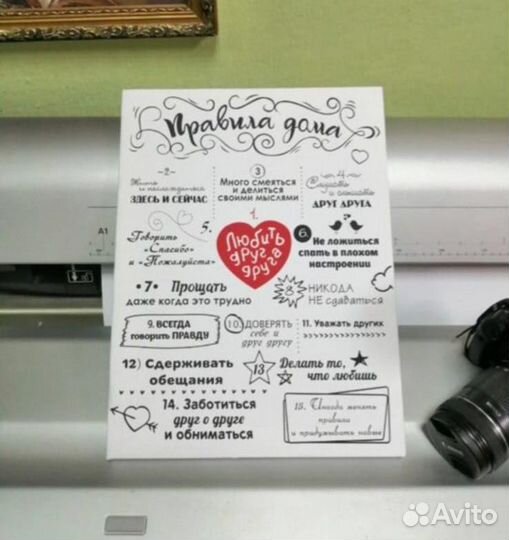 Правила дома
-2-
Жить
и наслаждаться
ЗДЕСЬ И СЕЙЧАС
3
Много смеяться
и делиться
своими мыслями
4
Слушать
и слышать
ДРУГ ДРУГА
1.
Любить
друг
друга
5.
Говорить
«Спасибо»
и «Пожалуйста»
6.
Не ложиться
спать в плохом
настроении
•7• Прощать
даже когда это трудно
8
НИКОДА
НЕ сдаваться
9. ВСЕГДА
говорить ПРАВДУ
10. ДОВЕРЯТЬ
себе и
друг другу
11. Уважать других
12) Сдерживать
обещания
13
Делать то,
что любишь
14. Заботиться
друг о друге
и обниматься
15. Иногда менять
правила
и придумывать новые
A1
Avito